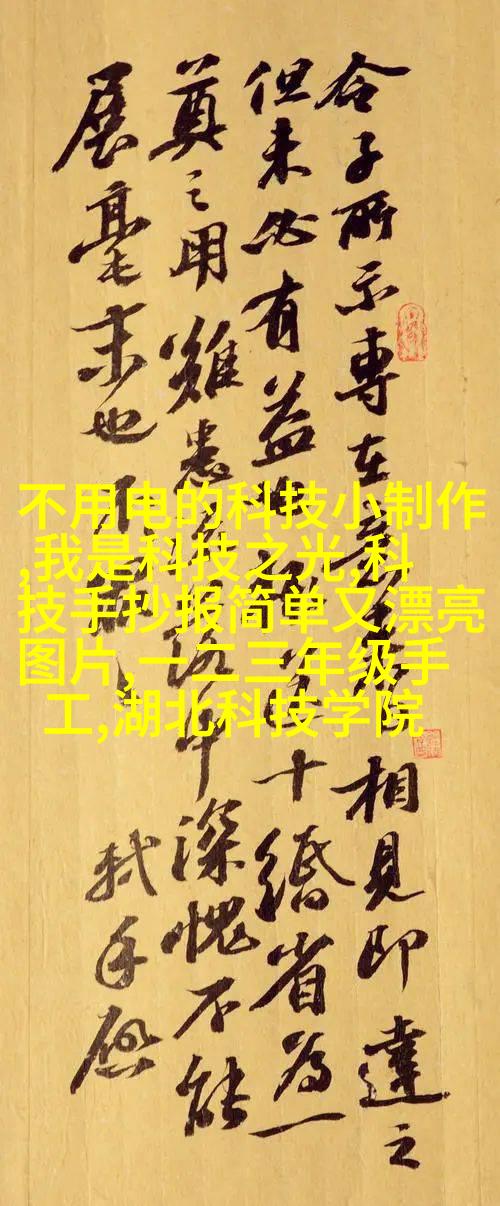 令子所示專在意相見即達之
但未必有益十緡省為一
奠之用雖患落中深愧不能
展毫末也不
軾手啟
不用电的科技小制作
,我是科技之光,科
技手抄报简单又漂亮
图片,一二三年级手
工,湖北科技学院